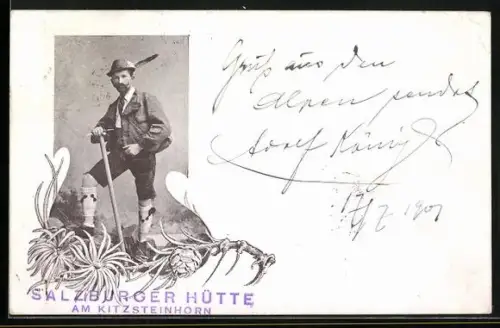 Gruß aus den
Alpen sendet
Adolf König
17/7 1901
SALZBURGER HÜTTE
AM KITZSTEINHORN